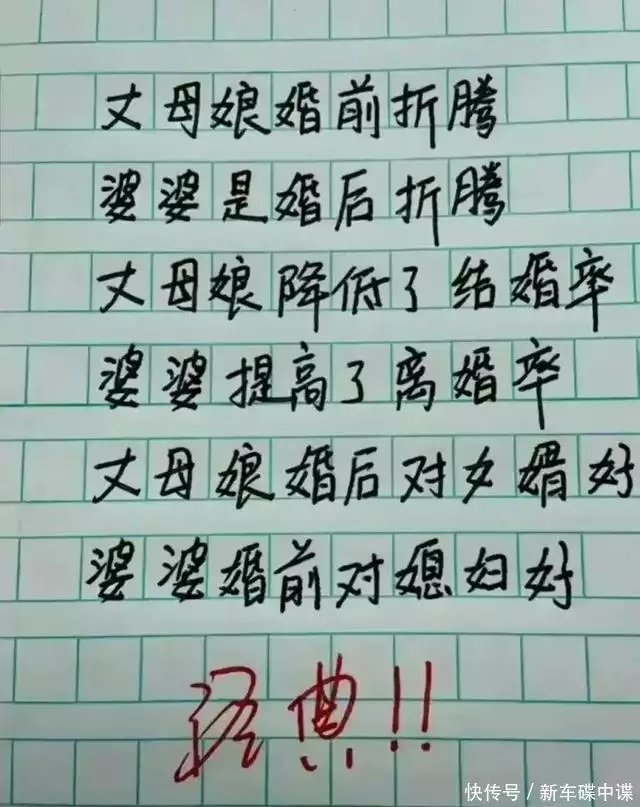 丈母娘婚前折腾
婆婆是婚后折腾
丈母娘降低了结婚率
婆婆提高了离婚率
丈母娘婚后对女婿好
婆婆婚前对媳妇好
经典!!
快传号/新车碟中谍